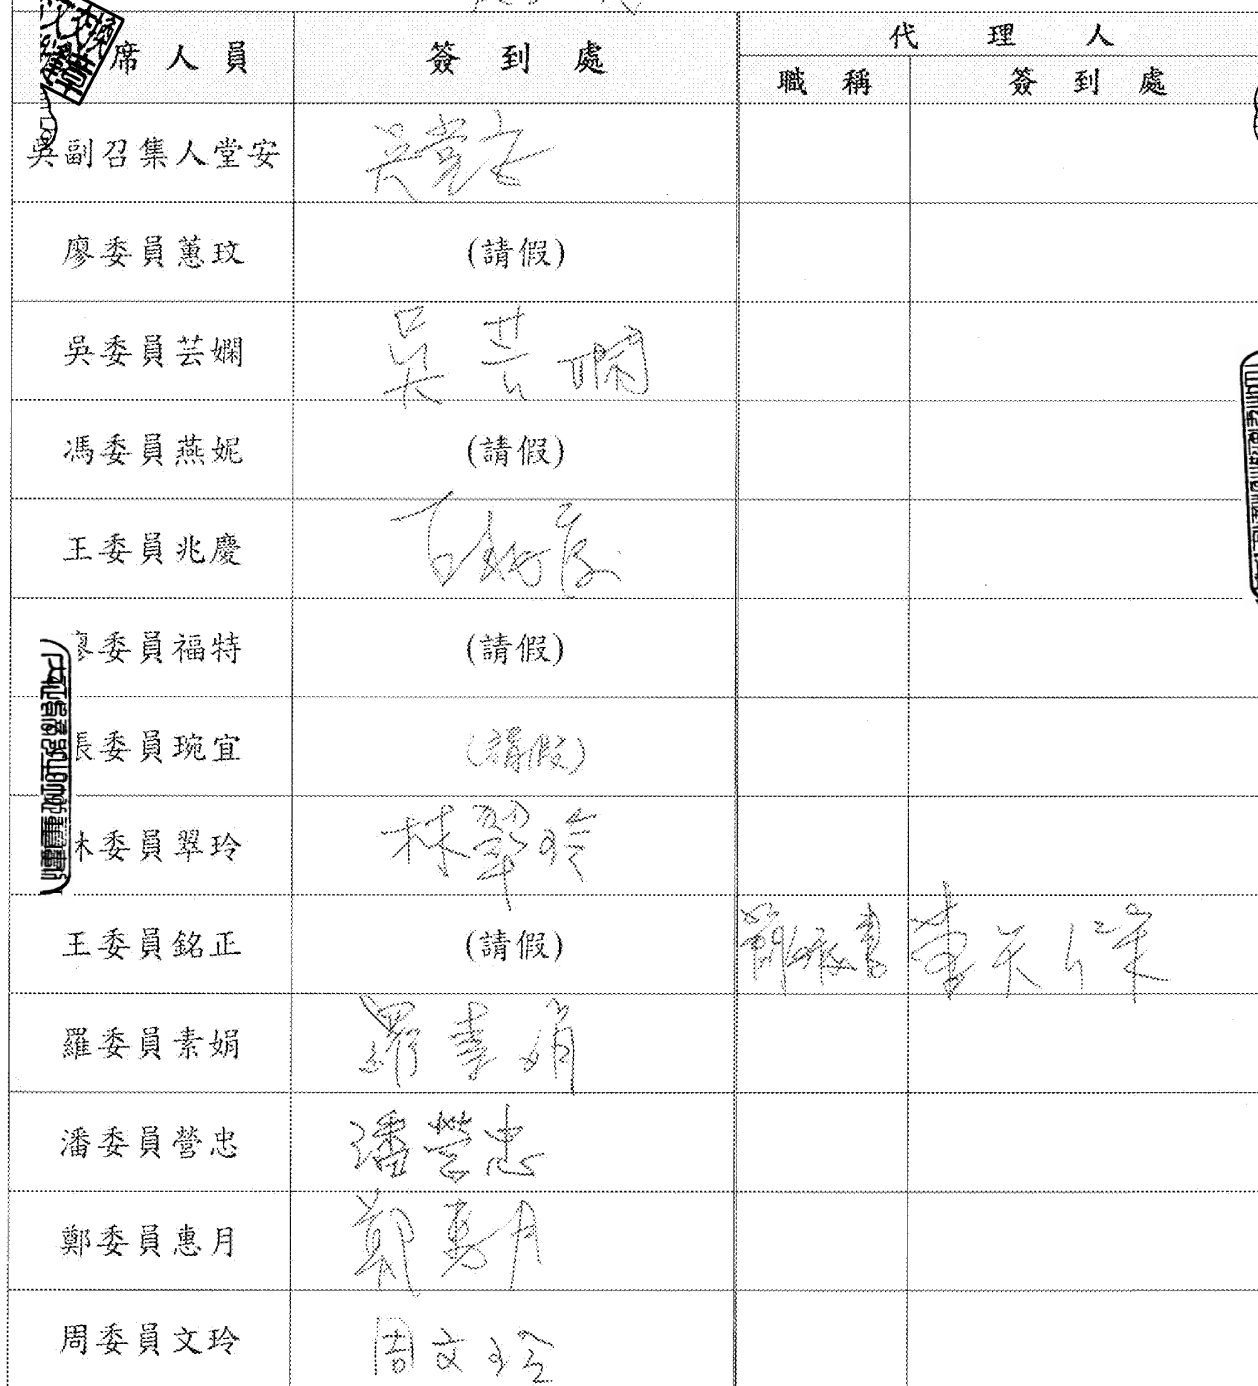 席人員 簽到處 代理人
職稱 簽到處
吳副召集人堂安 吳堂安
廖委員蕙玟 (請假)
吳委員芸嫻 吳芸嫻
馮委員燕妮 (請假)
王委員兆慶
廖委員福特 (請假)
張委員琬宜 (請假)
林委員翠玲 林翠玲
王委員銘正 (請假)
羅委員素娟 羅素娟
潘委員營忠 潘營忠
鄭委員惠月 鄭惠月
周委員文玲 周文玲